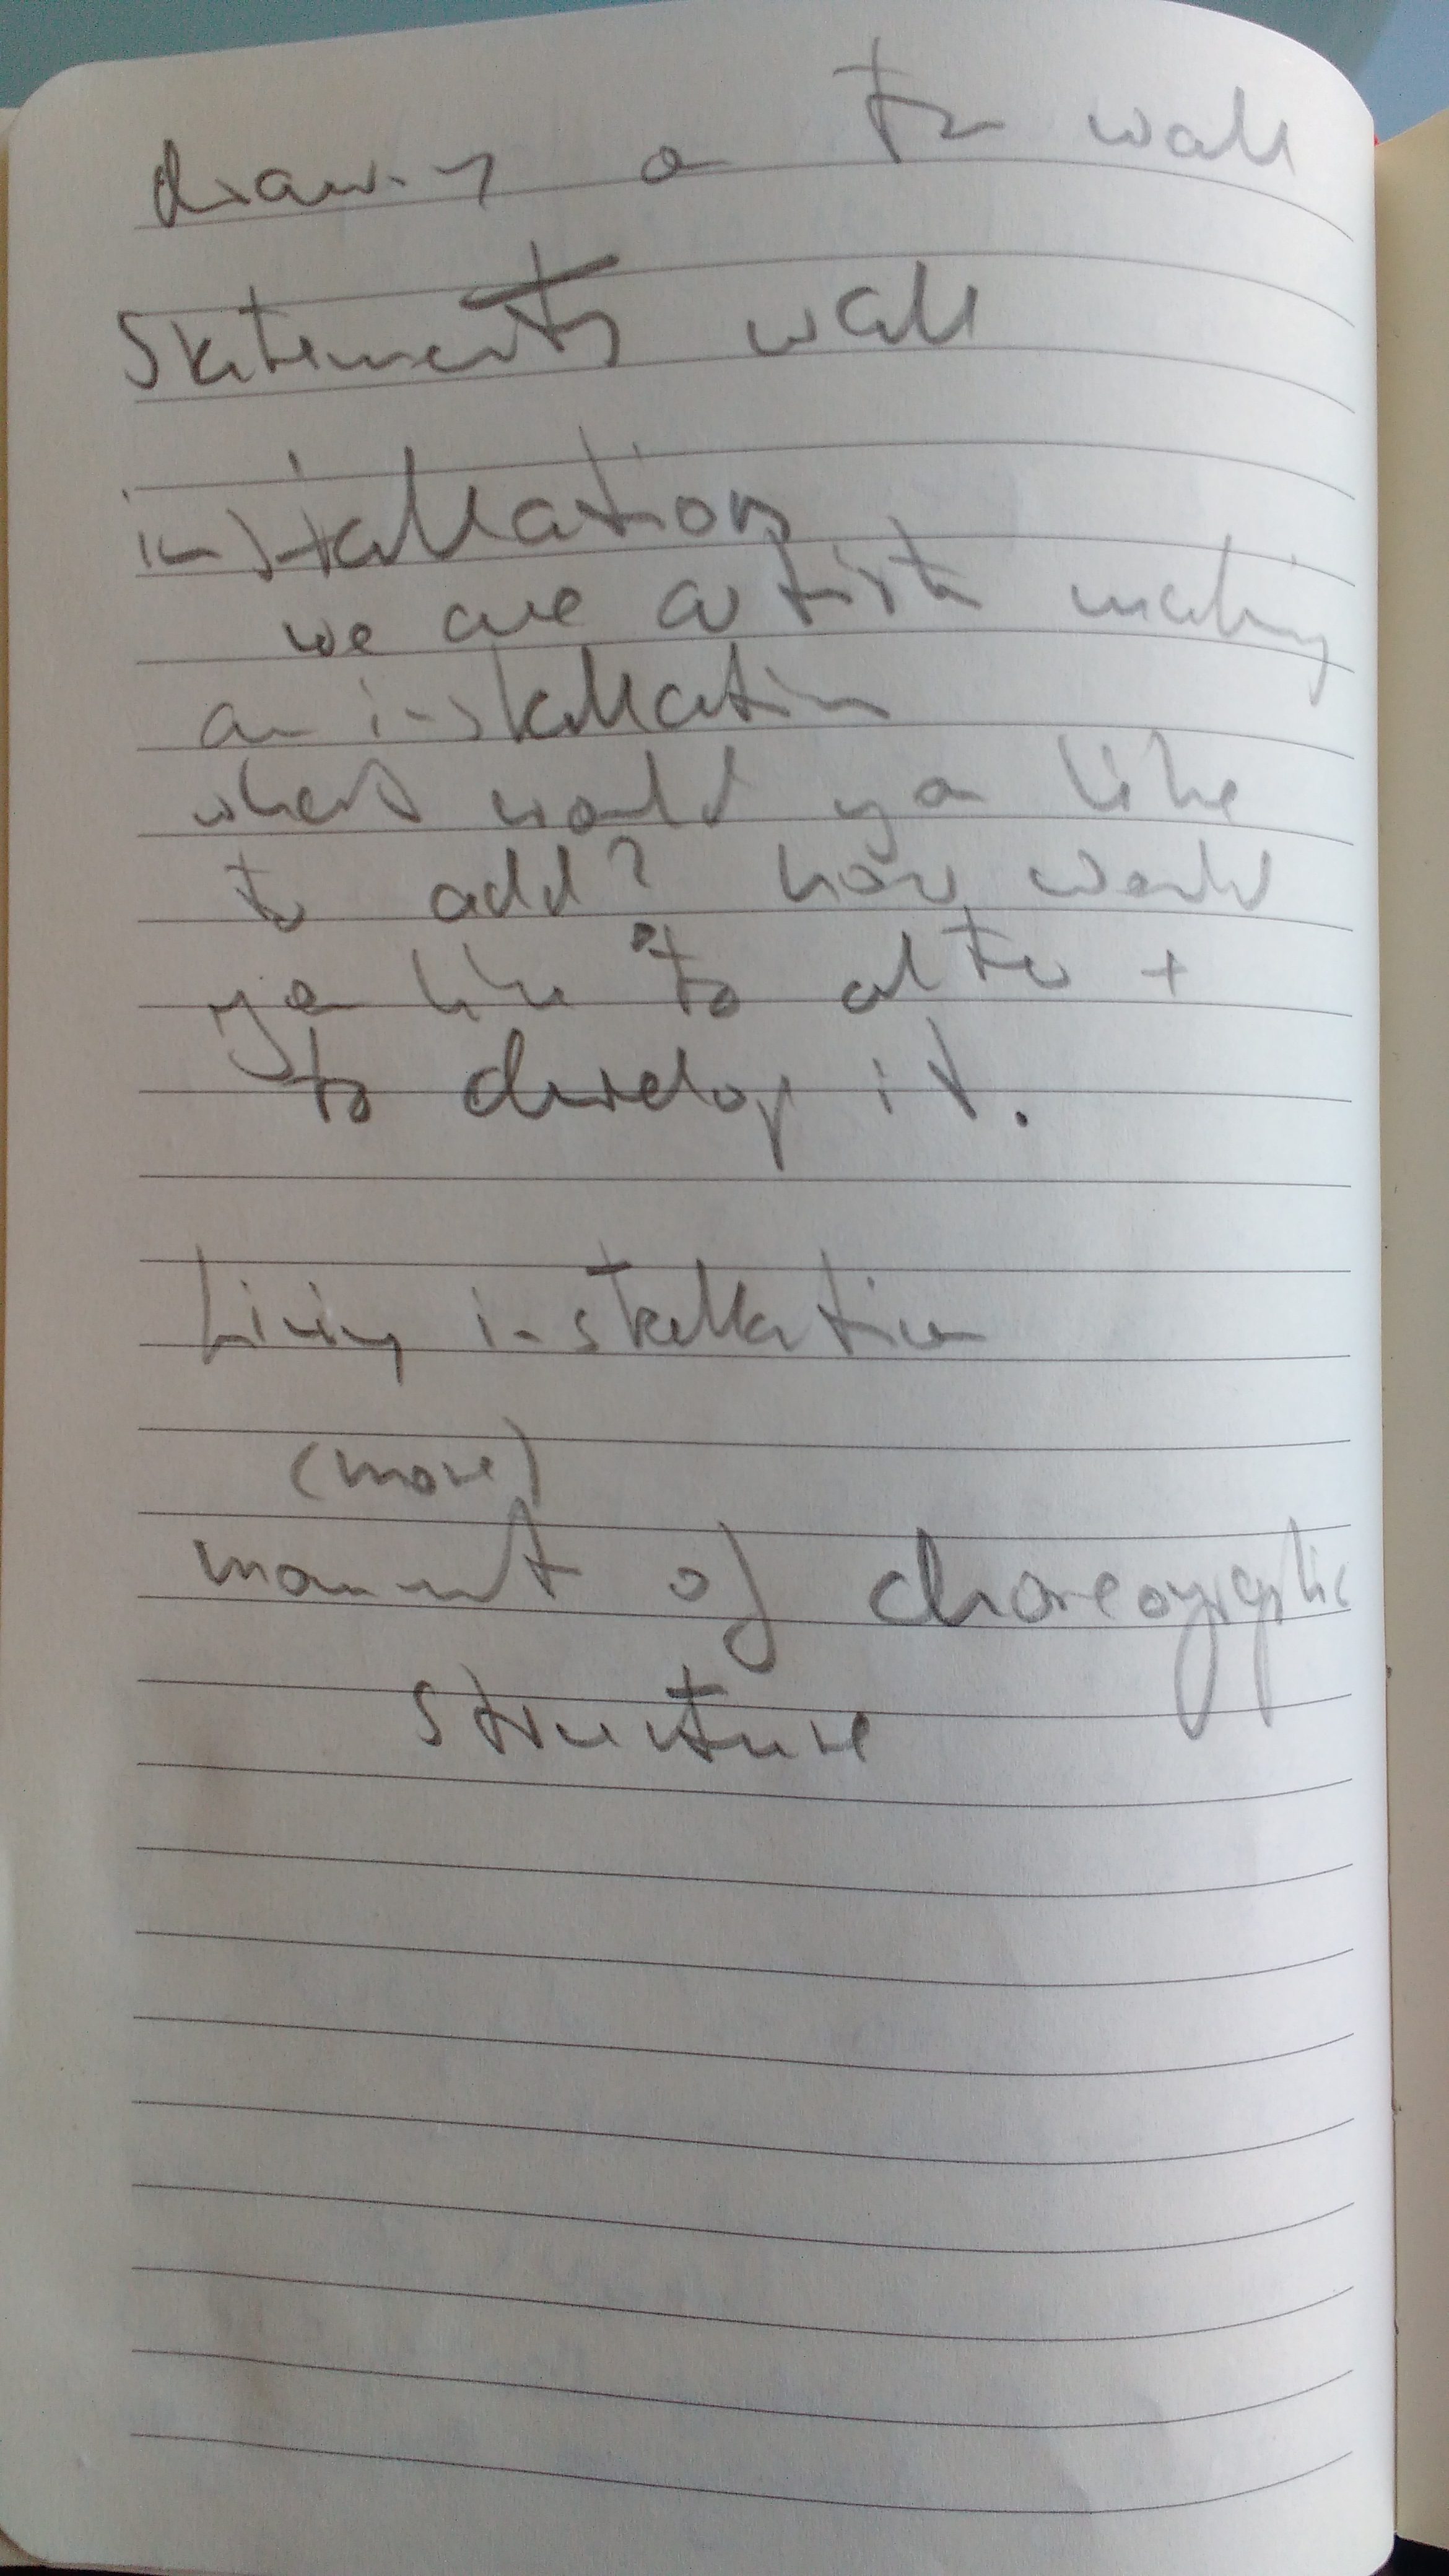 drawing on the wall
Statements wall
installation
we are artists making
an installation
what would you like
to add? how would
you like to alter +
to develop it.
Living installation
(more)
moment of choreographic
structure